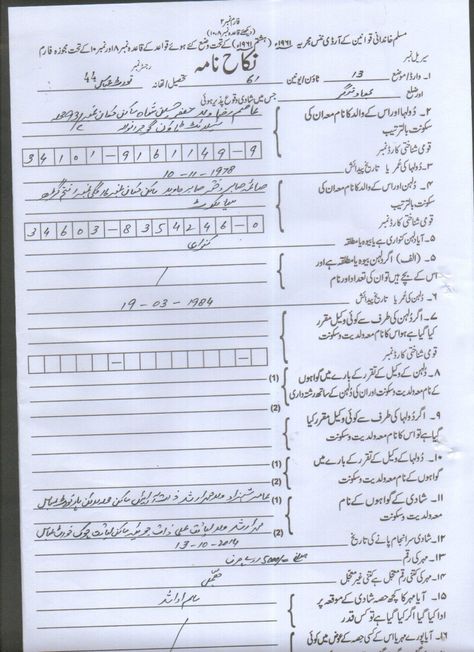 فارم نمبر ۲
(دیکھئے قاعدہ ۸، ۱۰)
مسلم خاندانی قوانین کے آرڈی ننس مجریہ ۱۹۶۱ء (ہشتم ۱۹۶۱ء) کے تحت وضع کئے ہوئے قواعد کے قاعدہ نمبر ۸ اور نمبر ۱۰ کے تحت مجوزہ فارم
نکاح نامہ
سیریل نمبر رجسٹر نمبر 44
۱۔ وارڈ/موضع 13 ٹاؤن/یونین 61 تحصیل/تھانہ فورٹ عباس
اور ضلع بہاولنگر جس میں شادی وقوع پذیر ہوئی
۲۔ دولہا اور اس کے والد کا نام معہ ان کی
سکونت بالترتیب
قومی شناختی کارڈ نمبر 34101-9161149-9
۳۔ دولہا کی عمر یا تاریخ پیدائش 10-11-1978
۴۔ دلہن اور اس کے والد کا نام معہ ان کی
سکونت بالترتیب
قومی شناختی کارڈ نمبر 34603-8354246-0
۵۔ آیا دلہن کنواری ہے یا بیوہ یا مطلقہ کنواری
۵۔ (الف) اگر دلہن بیوہ یا مطلقہ ہے اور
اس کے بچے ہیں تو ان کی تعداد اور نام /
۶۔ دلہن کی عمر یا تاریخ پیدائش 19-03-1984
۷۔ اگر دلہن کی طرف سے کوئی وکیل مقرر
کیا گیا ہے تو اس کا نام معہ ولدیت و سکونت
قومی شناختی کارڈ نمبر
۸۔ دلہن کے وکیل کے تقرر کے بارے میں گواہوں (1)
کے نام معہ ولدیت و سکونت اور ان کی دلہن کے ساتھ رشتہ داری (2)
۹۔ اگر دولہا کی طرف سے کوئی وکیل مقرر کیا
گیا ہے تو اس کا نام معہ ولدیت و سکونت
۱۰۔ دولہا کے وکیل کے تقرر کے بارے میں (1)
گواہوں کے نام معہ ولدیت و سکونت (2)
۱۱۔ شادی کے گواہوں کے نام (1)
معہ ولدیت و سکونت (2)
۱۲۔ شادی سرانجام پانے کی تاریخ 13-10-2014
۱۳۔ مہر کی رقم مبلغ 5000/- روپے صرف
۱۴۔ مہر کی کتنی رقم معجل ہے کتنی غیر معجل معجل
۱۵۔ آیا مہر کا کچھ حصہ شادی کے موقعہ پر
ادا کیا گیا اگر کیا گیا ہے تو کس قدر
۱۶۔ آیا پورے مہر یا اس کے کسی حصہ کے عوض میں کوئی